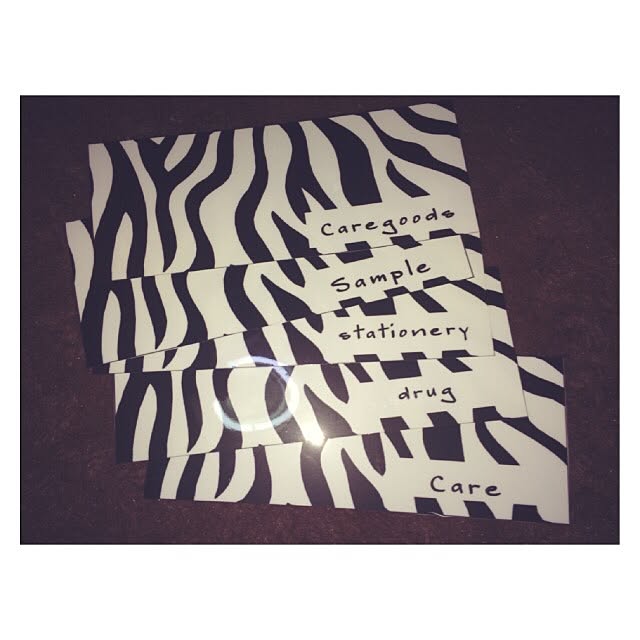 Caregoods
Sample
stationery
drug
Care